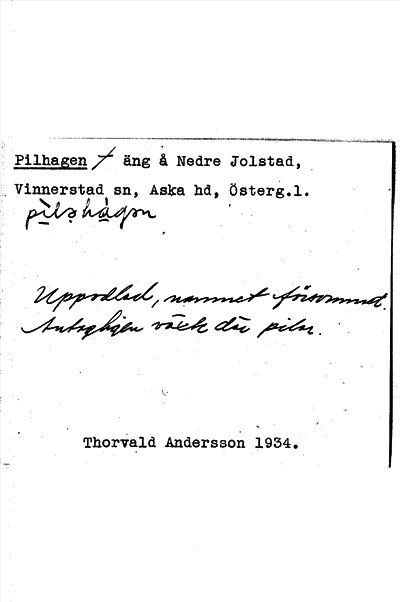 Pilhagen / äng å Nedre Jolstad,
Vinnerstad sn, Aska hd, Österg.l.
Uppodlad, namnet försvunnet.
Antagligen växte där pilar.
Thorvald Andersson 1934.